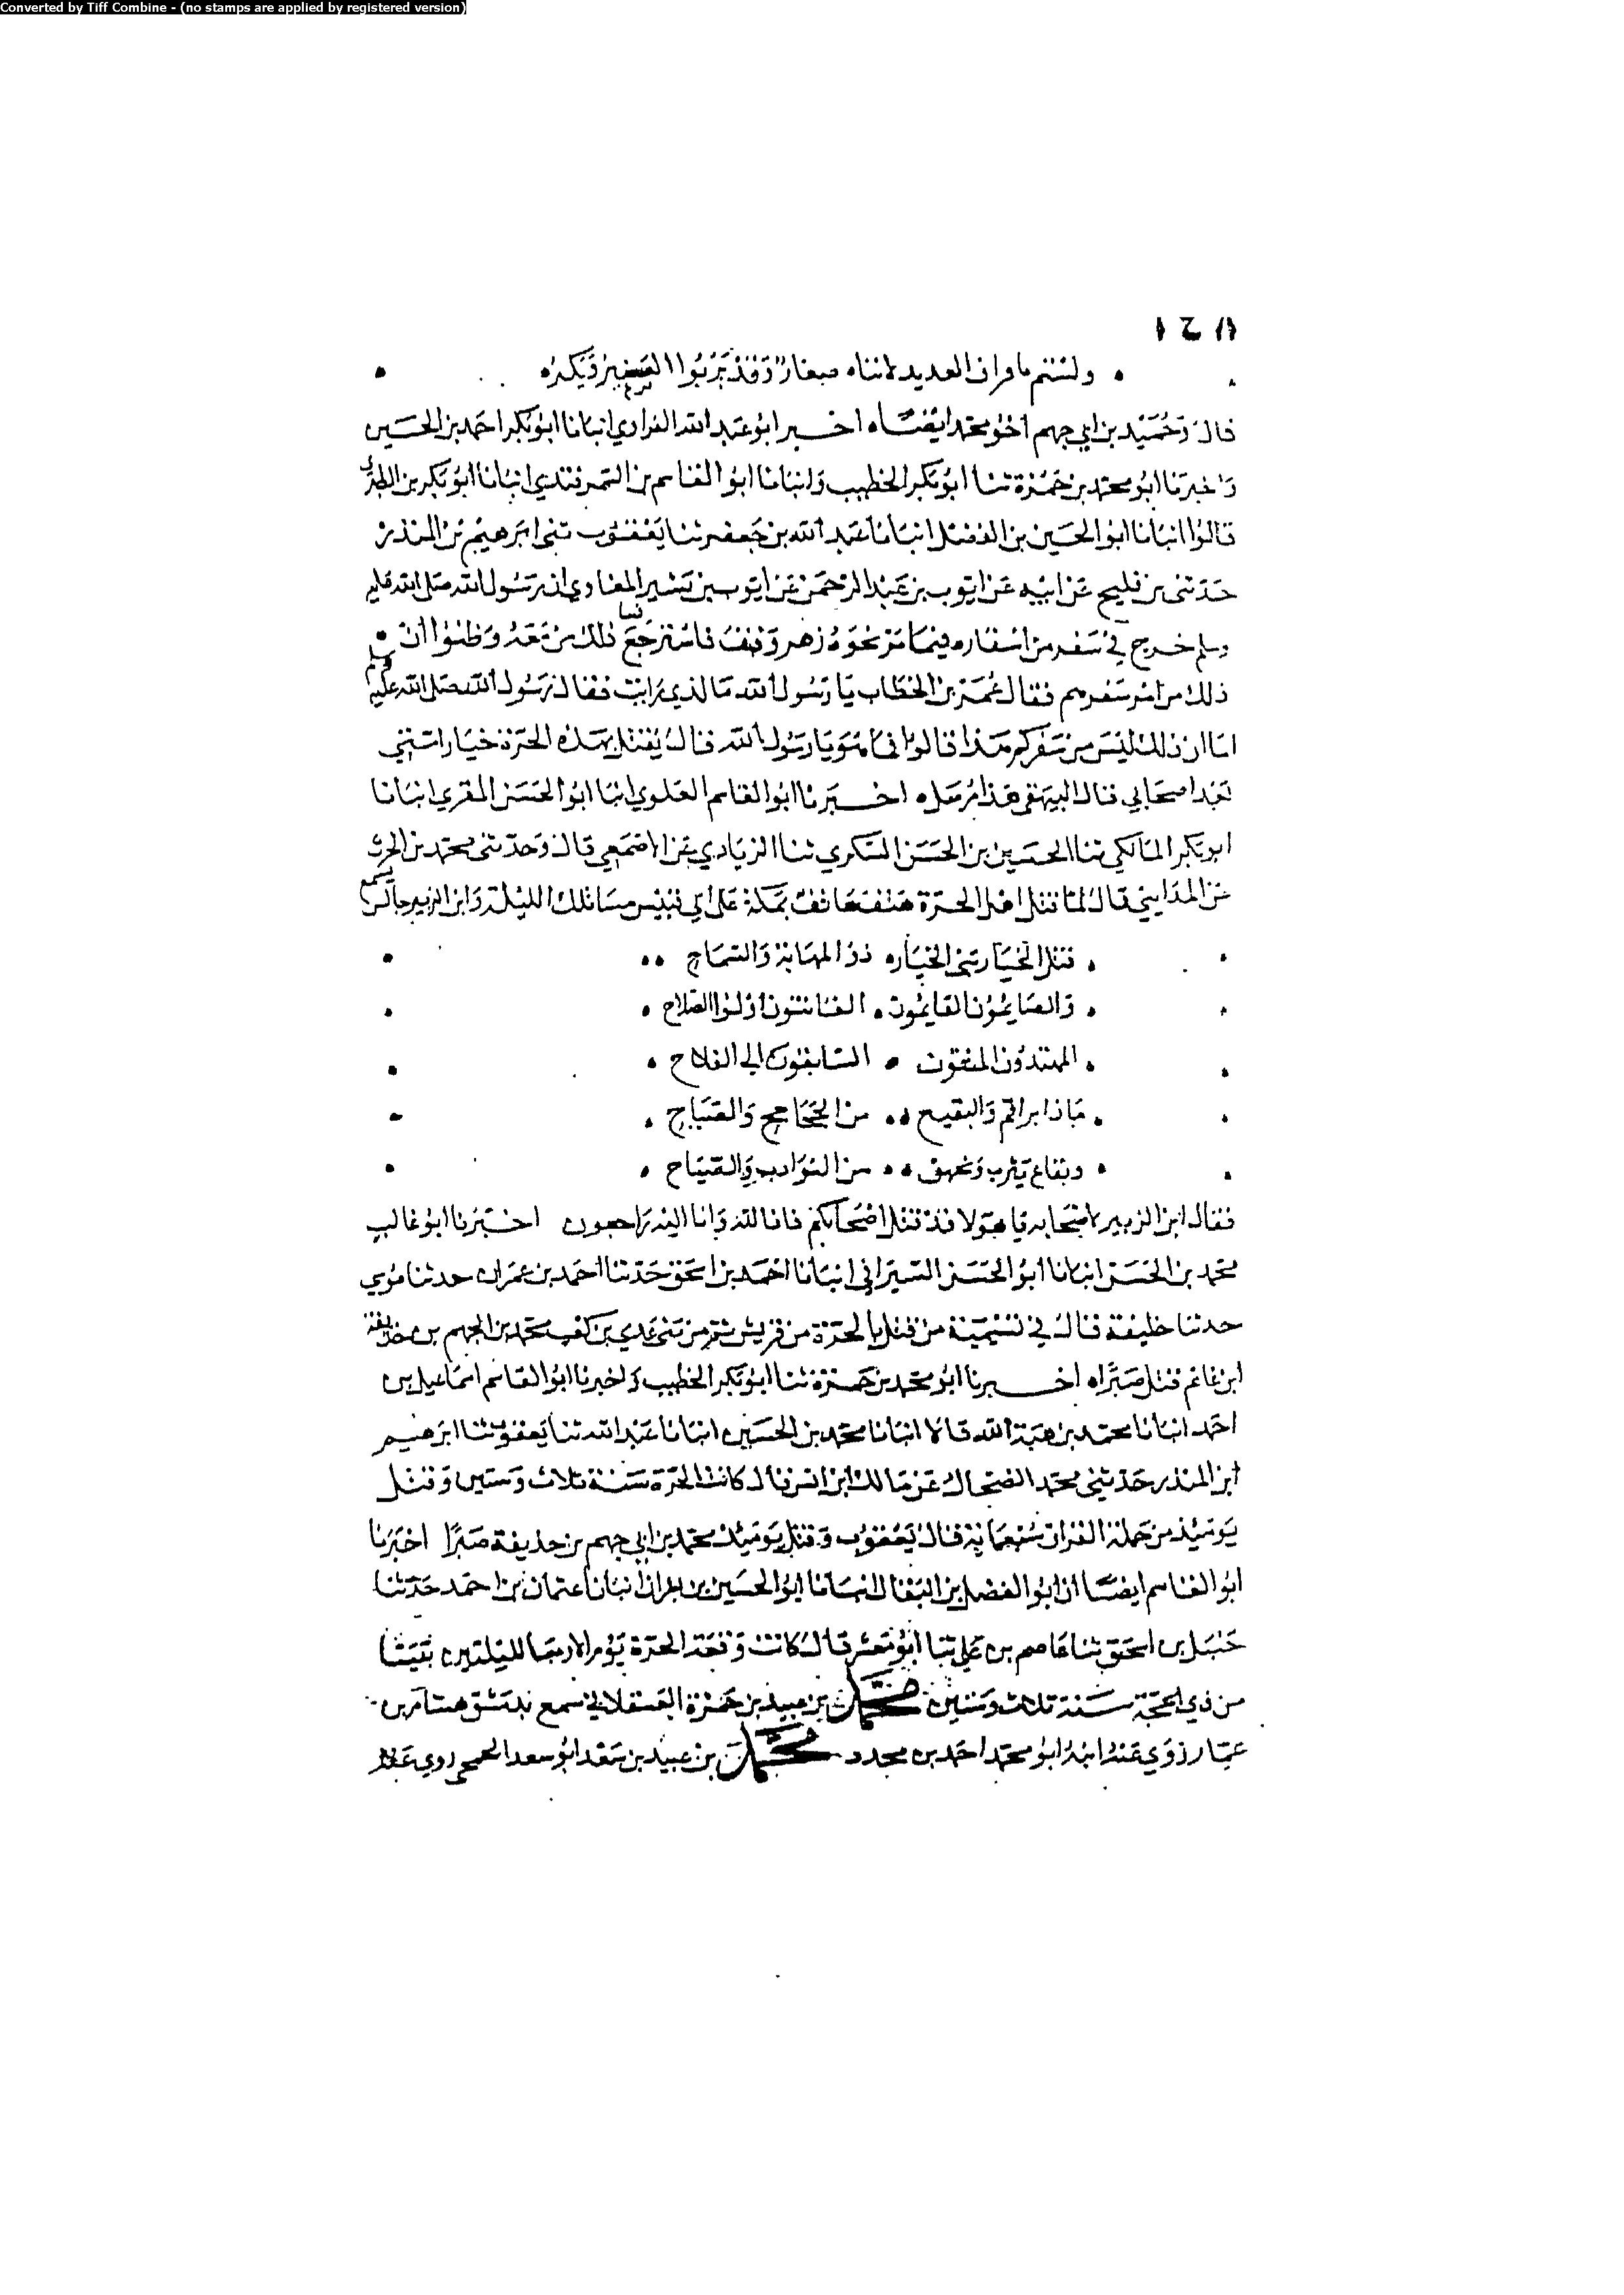 Converted by Tiff Combine - (no stamps are applied by registered version)
ولستم بأقران العديد لأننا صغار وقد يربوا الصغير ويكبر
قال وحميد بن ابي جهم اخو محمد ايضا اخبر ابو عبد الله الفراوي انبانا ابو بكر احمد بن الحسين
واخبرنا ابو محمد بن حمزة ثنا ابو بكر الخطيب وانبانا ابو القاسم بن السمرقندي انبانا ابو بكر بن الطبري
قالوا انبانا ابو الحسين بن الفضل انبانا عبد الله بن جعفر ثنا يعقوب ثنى ابرهيم بن المنذر
حدثنى بن فليح عن ابيه عن ايوب بن عبد الرحمن عن ايوب بن بشير المعاوي ان رسول الله صلى الله عليه
وسلم خرج في سفر من اسفاره فلما مر بحرة زهر وقف فاسترجع فسا ذلك من معه وظنوا ان
ذلك من امر سفرهم فقال عمر بن الخطاب يا رسول الله ما الذي رايت فقال رسول الله صلى الله عليه وسلم
اما ان ذلك ليس من سفركم هذا قالوا فما هو يا رسول الله قال يقتل بهذه الحرة خيار امتي
بعد اصحابي قال البيهقى هذا مرسل اخبرنا ابو القاسم العلوي انبا ابو الحسن المقري انبانا
ابو بكر المالكي ثنا الحسين بن الحسن السكري ثنا الزيادي عن الاصمعي قال وحدثنى محمد بن الحرث
عن المدايني قال لما قتل اهل الحرة هتف هاتف بمكة على ابي قبيس مسا تلك الليلة وابن الزبير جالس يسمع
قتل الخيار بنى الخيار ذوو المهابة والسماح
والصايمون القايمون القانتون اولوا الصلاح
المهتدون المتقون السابقون الى الفلاح
ماذا بواقم والبقيع من الجحاجح والصباح
وبقاع يثرب ويحهن من النوادب والصياح
فقال ابن الزبير لاصحابه يا هولا قد قتل اصحابكم فانا لله وانا اليه راجعون اخبرنا ابو غالب
محمد بن الحسن انبانا ابو الحسن السيرافي انبانا احمد بن اسحق حدثنا احمد بن عمران حدثنا موسي
حدثنا خليفة قال في تسمية من قتل بالحرة من قريش ثم من بنى عدي بن كعب محمد بن ابي الجهم بن حذيفة
ابن غانم قتل صبرا اخبرنا ابو محمد بن حمزة ثنا ابو بكر الخطيب واخبرنا ابو القاسم اسماعيل بن
احمد انبانا محمد بن هبة الله قالا انبانا محمد بن الحسين انبانا عبد الله ثنا يعقوب ثنا ابرهيم
ابن المنذر حدثني محمد الضحاك عن مالك ابن انس قال كانت الحرة سنة ثلاث وستين وقتل
يومئذ من حملة القران سبعماية قال يعقوب وقتل يومئذ محمد بن ابي جهم بن حذيفة صبرا اخبرنا
ابو القاسم ايضا ان ابو الفضل بن البقال انبانا ابو الحسين بن بشران انبانا عثمان بن احمد حدثنا
حنبل بن اسحق ثنا عاصم بن علي ثنا ابو معشر قال كانت وقعة الحرة يوم الاربعا لليلتين بقيتا
من ذي الحجة سنة ثلاث وستين محمد بن عبيد بن حمزة العسقلاني سمع بدمشق هشام بن
عمار روى عنه ابنه ابو محمد احمد بن محمد محمد بن عبيد بن سعد ابو سعد الجمحي روي عنه